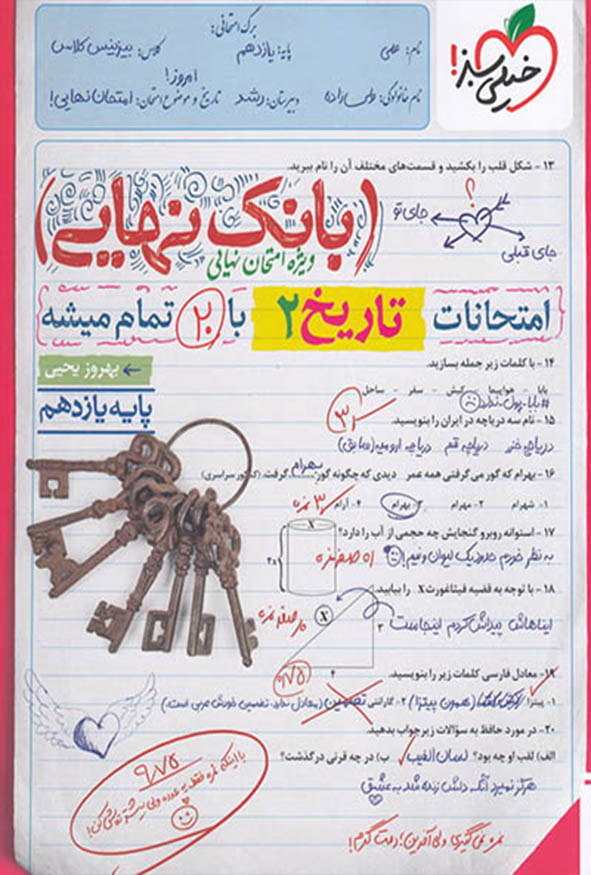 خیلی سبز!
برگ امتحانی:
نام: علی
پایه: یازدهم
کلاس: بیزینس کلاس
نام خانوادگی: عباس‌زاده
دبیرستان: رشد
تاریخ و موضوع امتحان: امروز! امتحان نهایی!
۱۳ - شکل قلب را بکشید و قسمت‌های مختلف آن را نام ببرید.
؟
جای تو
جای قبلی
(بانک نهایی)
ویژه امتحان نهایی
امتحانات تاریخ ۲ با ۲۰ تمام میشه
۱۴ - با کلمات زیر جمله بسازید.
بهروز یحیی
بابا - هواپیما - کیش - سفر - ساحل
#بابا_پول_ندارد
پایه یازدهم
۱۵ - نام سه دریاچه در ایران را بنویسید.
دریاچه خزر دریاچه قم دریاچه ارومیه (سابق)
۱۶ - بهرام که گور می‌گرفتی همه عمر دیدی که چگونه گور بهرام گرفت. (کنکور سراسری)
۱- شهرام ۲- مهرام ۳- بهرام ۴- آرام
۳ نمره
۱۷ - استوانه روبرو گنجایش چه حجمی از آب را دارد؟
X
به نظر خودم حدود یک لیوان و نیم!
صفر نمره
۲x
۱۸ - با توجه به قضیه فیثاغورث X را بیابید.
ایناهاش پیداش کردم اینجاست
X
۳
صفر نمره
۴
۱۹ - معادل فارسی کلمات زیر را بنویسید.
۱- پیتزا (همون پیتزا) ۲- گارانتی تضمین (معادل ندارد، تضمین خودش عربی است.)
۲۰ - در مورد حافظ به سؤالات زیر جواب بدهید.
الف) لقب او چه بود؟ لسان الغیب ب) در چه قرنی درگذشت؟
هرگز نمیرد آنکه دلش زنده شد به عشق
۹/۷۵
نمره نمی‌گیری ولی آفرین؛ دمت گرم!